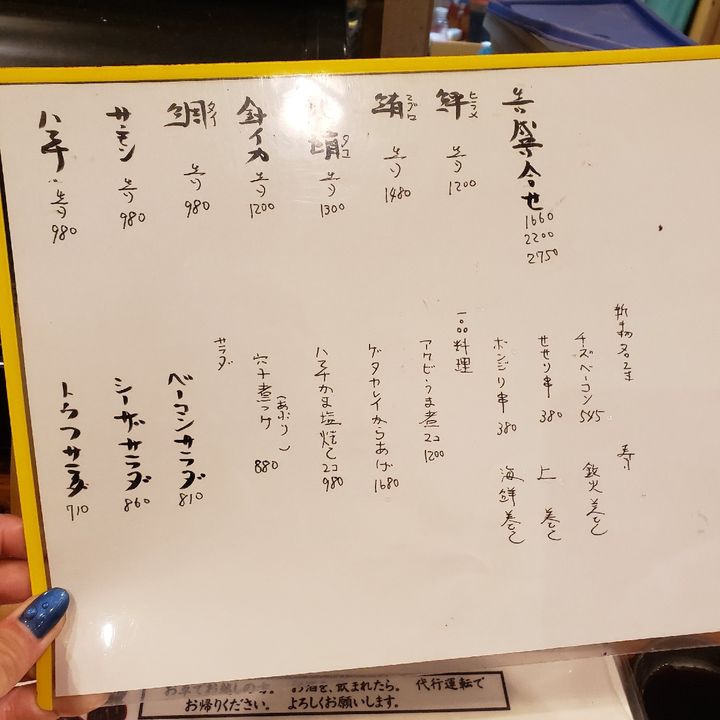 吉盛合せ
1660
2200
2750
ヒラメ
吉り
1200
鮪 マグロ
吉り
1480
タコ
吉り
1300
針イカ
吉り
1200
鯛 タイ
吉り
980
サーモン
吉り
980
ハマチ
吉り
980
チーズベーコン 545
せせり串 380
ボンジリ串 380
寿し
鉄火巻き
上 巻き
海鮮巻き
一品料理
アワビうま煮 2コ 1200
ゲタカレイからあげ 1680
ハマチかま塩焼き 2コ 980
穴子煮つけ (あぶり) 880
サラダ
ベーコンサラダ 810
シーザーサラダ 860
トウフサラダ 710
お酒を、飲まれたら。 代行運転で
お帰りください。 よろしくお願いします。